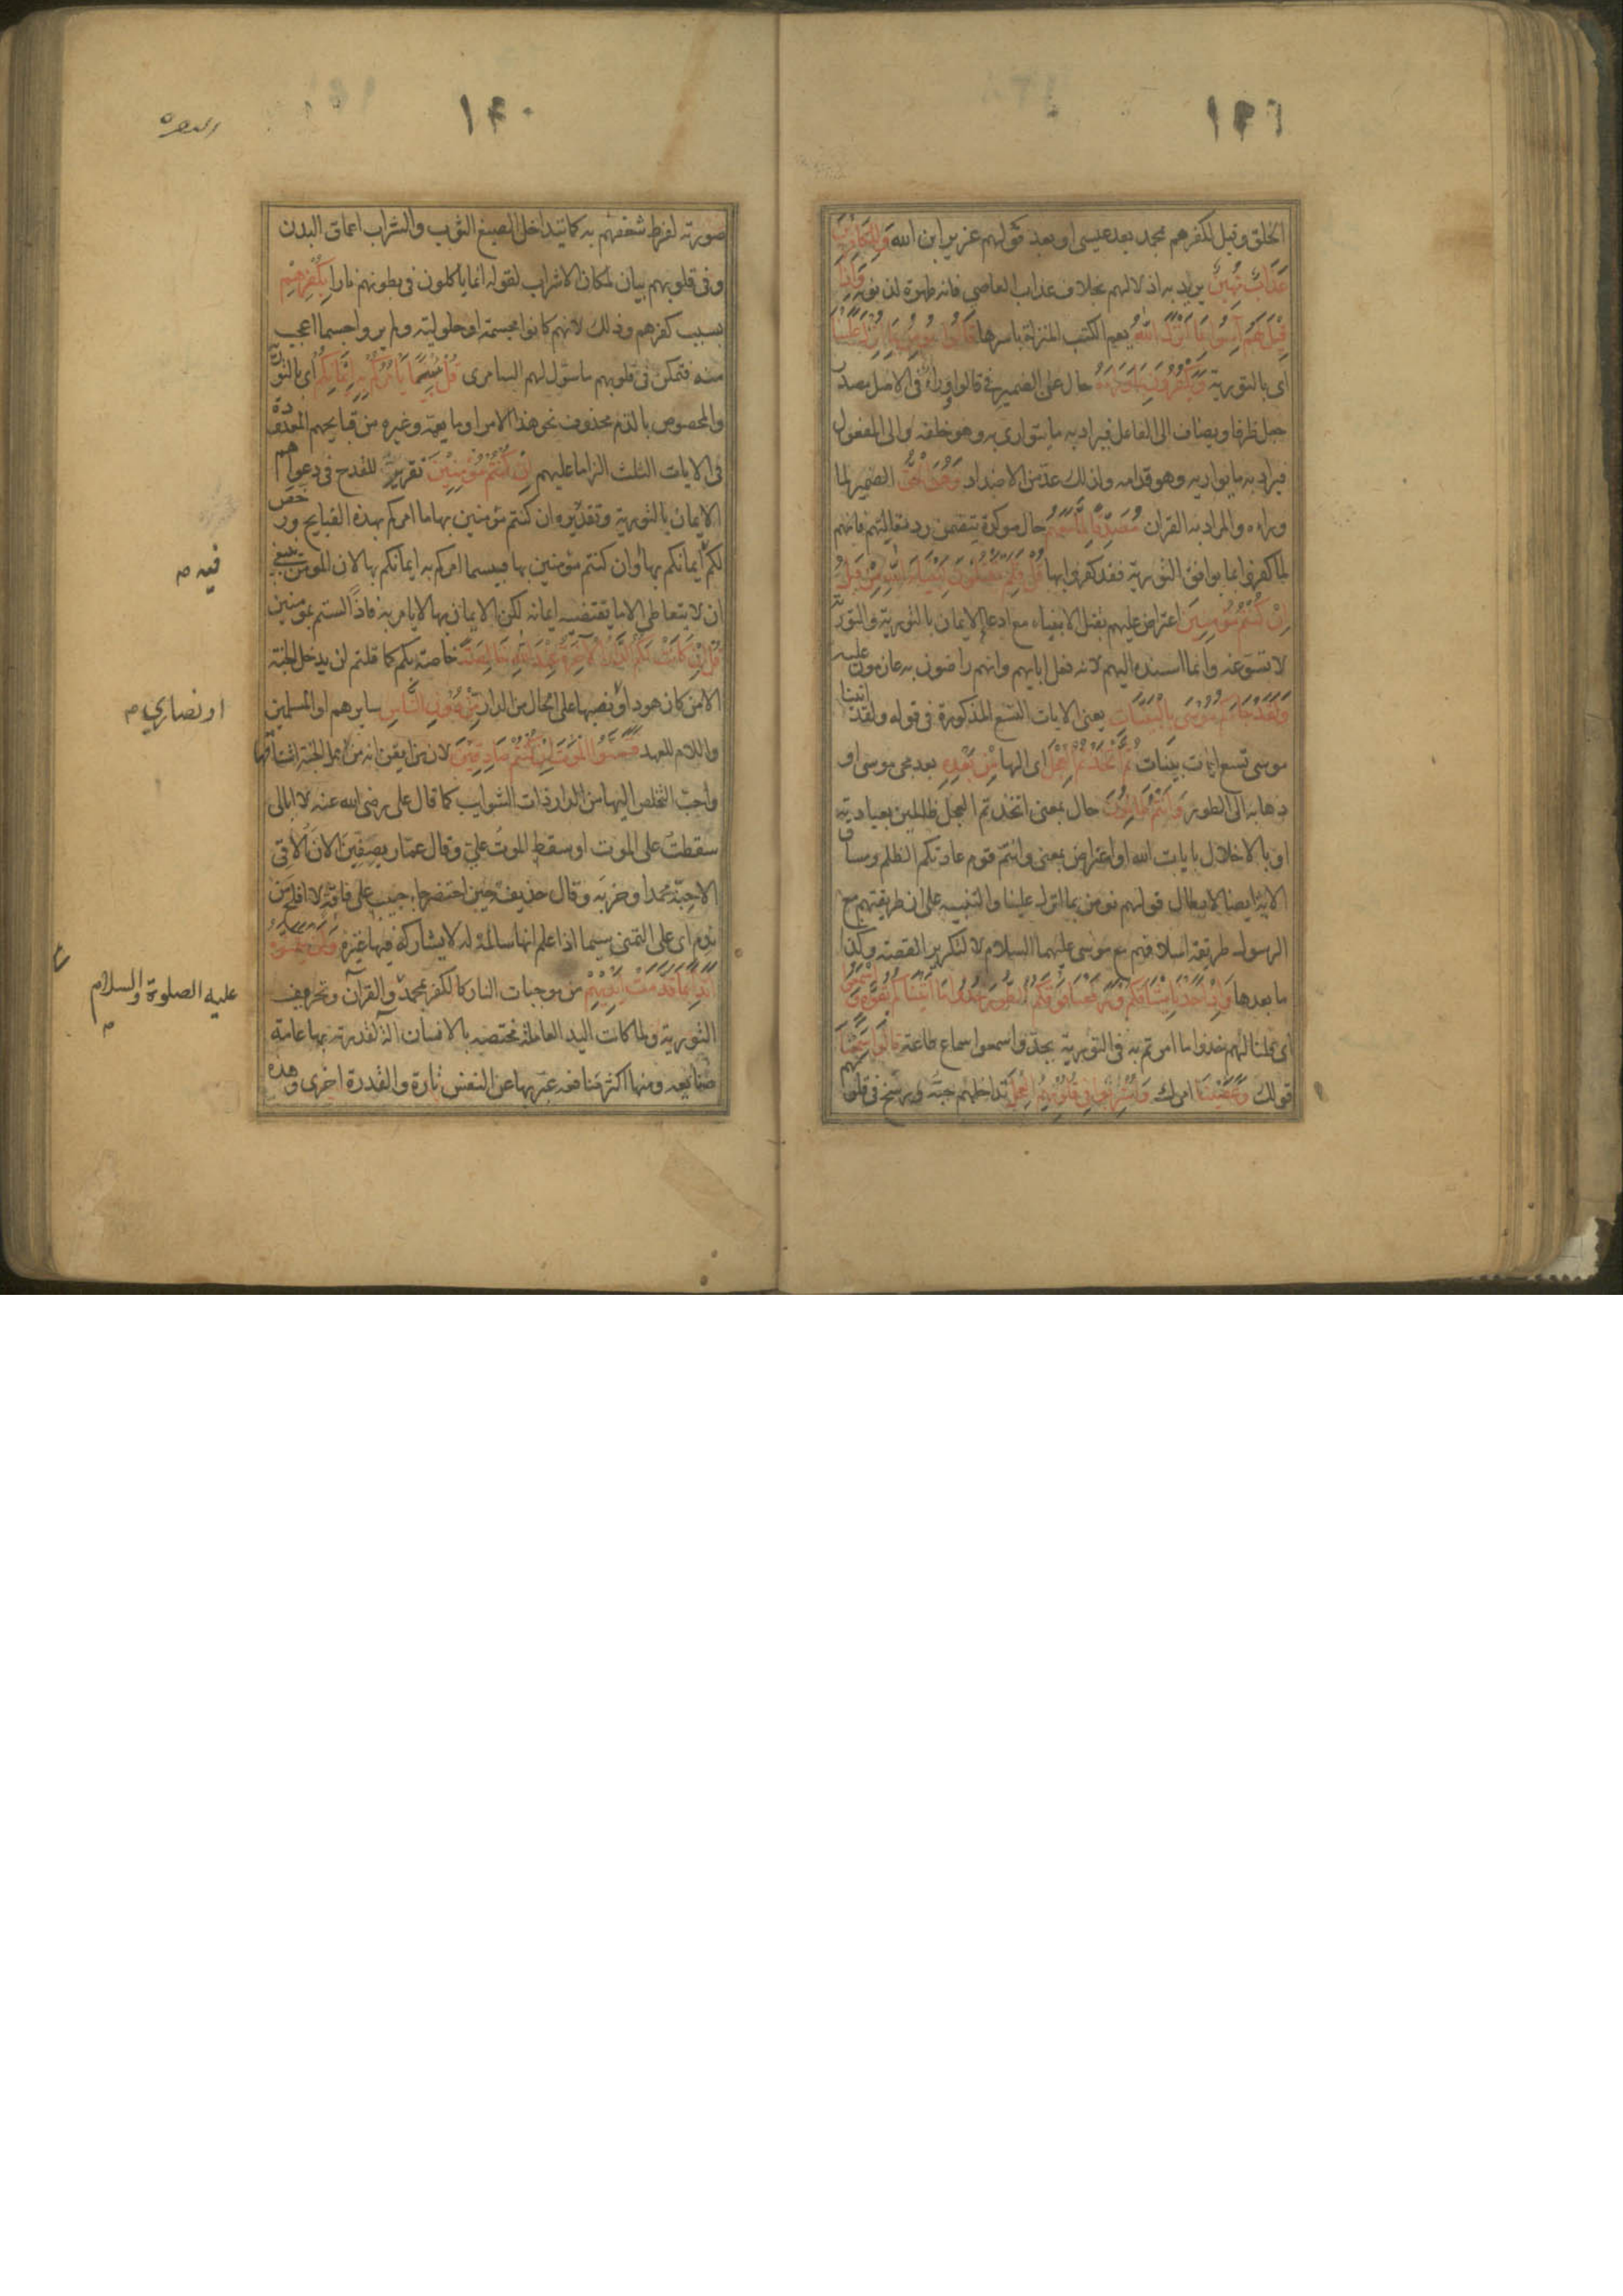 ١٣٩
الخلق وقيل لكفرهم بمحمد بعد عيسى او بعد قولهم عزير ابن الله وَلِلْكَافِرِينَ
عَذَابٌ مُهِينٌ يريد به اذلالهم بخلاف عذاب العاصي فانه طهرة لذنوبه وَإِذَا
قِيلَ لَهُمْ آمِنُوا بِمَا أَنْزَلَ اللَّهُ يعم الكتب المنزلة باسرها قَالُوا نُؤْمِنُ بِمَا أُنْزِلَ عَلَيْنَا
اى بالتورية وَيَكْفُرُونَ بِمَا وَرَاءَهُ حال عن الضمير فى قالوا ووراء فى الاصل مصدر
جعل ظرفا ويضاف الى الفاعل فيراد به ما يتوارى به وهو خلفه والى المفعول
فيراد به ما يواريه وهو قدامه ولذلك عد من الاضداد وَهُوَ الْحَقُّ الضمير لما
وراءه والمراد به القران مُصَدِّقًا لِمَا مَعَهُمْ حال موكدة يتضمن رد مقالتهم فانهم
لما كفروا بما يوافق التورية فقد كفروا بها قُلْ فَلِمَ تَقْتُلُونَ أَنْبِيَاءَ اللَّهِ مِنْ قَبْلُ
إِنْ كُنْتُمْ مُؤْمِنِينَ اعتراض عليهم بقتل الانبياء مع ادعاء الايمان بالتورية والتورية
لا تسوغه وانما اسنده اليهم لانه فعل ابايهم وانهم راضون به عازمون عليه
وَلَقَدْ جَاءَكُمْ مُوسَى بِالْبَيِّنَاتِ يعنى الايات التسع المذكورة فى قوله ولقد اتينا
موسى تسع ايات بينات ثُمَّ اتَّخَذْتُمُ الْعِجْلَ اى الها مِنْ بَعْدِهِ بعد مجى موسى او
ذهابه الى الطور وَأَنْتُمْ ظَالِمُونَ حال بمعنى اتخذتم العجل ظالمين بعبادته
او بالاخلال بايات الله او اعتراض بمعنى وانتم قوم عادتكم الظلم ومساق
الاية ايضا لابطال قولهم نومن بما انزل علينا والتنبيه على ان طريقتهم مع
الرسول طريقة اسلافهم مع موسى عليهما السلام لا لتكرير القصة وكذا
ما بعدها وَإِذْ أَخَذْنَا مِيثَاقَكُمْ وَرَفَعْنَا فَوْقَكُمُ الطُّورَ خُذُوا مَا آتَيْنَاكُمْ بِقُوَّةٍ وَاسْمَعُوا
اى قلنا لهم خذوا ما امرتم به فى التورية بجد واسمعوا سماع طاعة قَالُوا سَمِعْنَا
قولك وَعَصَيْنَا امرك وَأُشْرِبُوا فِي قُلُوبِهِمُ الْعِجْلَ تداخلهم حبه ورسخ فى قلوبهم
١٤٠
البقره
صورته لفرط شغفهم به كما يتداخل الصبغ الثوب والشراب اعماق البدن
وفى قلوبهم بيان لمكان الاشراب لقوله انما ياكلون فى بطونهم نارا بِكُفْرِهِمْ
بسبب كفرهم وذلك لانهم كانوا مجسمة او حلولية ولم يروا جسما اعجب
منه فتمكن فى قلوبهم ما سول لهم السامرى قُلْ بِئْسَمَا يَأْمُرُكُمْ بِهِ إِيمَانُكُمْ اى بالتورية
والمخصوص بالذم محذوف نحو هذا الامر او ما يعمه وغيره من قبايحهم المعدودة
فى الايات الثلث الزاما عليهم إِنْ كُنْتُمْ مُؤْمِنِينَ تقرير للقدح فى دعواهم
الايمان بالتورية وتقديره ان كنتم مؤمنين بها ما امركم بهذه القبايح ورخص
لكم ايمانكم بها وان كنتم مؤمنين بها فبيسما امركم به ايمانكم بها لان المومن ينبغى
ان لا يتعاطى الا ما يقتضيه ايمانه لكن الايمان بها لا يامر به فاذا لستم بمومنين
قُلْ إِنْ كَانَتْ لَكُمُ الدَّارُ الْآخِرَةُ عِنْدَ اللَّهِ خَالِصَةً خاصة بكم كما قلتم لن يدخل الجنة
الا من كان هودا ونصبها على الحال من الدار مِنْ دُونِ النَّاسِ سايرهم او المسلمين
واللام للعهد فَتَمَنَّوُا الْمَوْتَ إِنْ كُنْتُمْ صَادِقِينَ لان من ايقن انه من اهل الجنة اشتاقها
واحب التخلص اليها من الدار ذات الشوايب كما قال على رضى الله عنه لا ابالى
سقطت على الموت او سقط الموت على وقال عمار بصفين الان الاقى
الاحبة محمدا وحزبه وقال حذيفة حين احتضر جاء حبيب على فاقة لا افلح من
ندم اى على التمنى سيما اذا علم انها سالمة له لا يشاركه فيها غيره وَلَنْ يَتَمَنَّوْهُ
أَبَدًا بِمَا قَدَّمَتْ أَيْدِيهِمْ من موجبات النار كالكفر بمحمد والقرآن وتحريف
التورية ولما كانت اليد العاملة مختصة بالانسان الة لقدرته بها عامة
صنايعه ومنها اكثر منافعه عبر بها عن النفس تارة والقدرة اخرى وهذه
فيه م
او نصاري م
عليه الصلوة والسلام
م